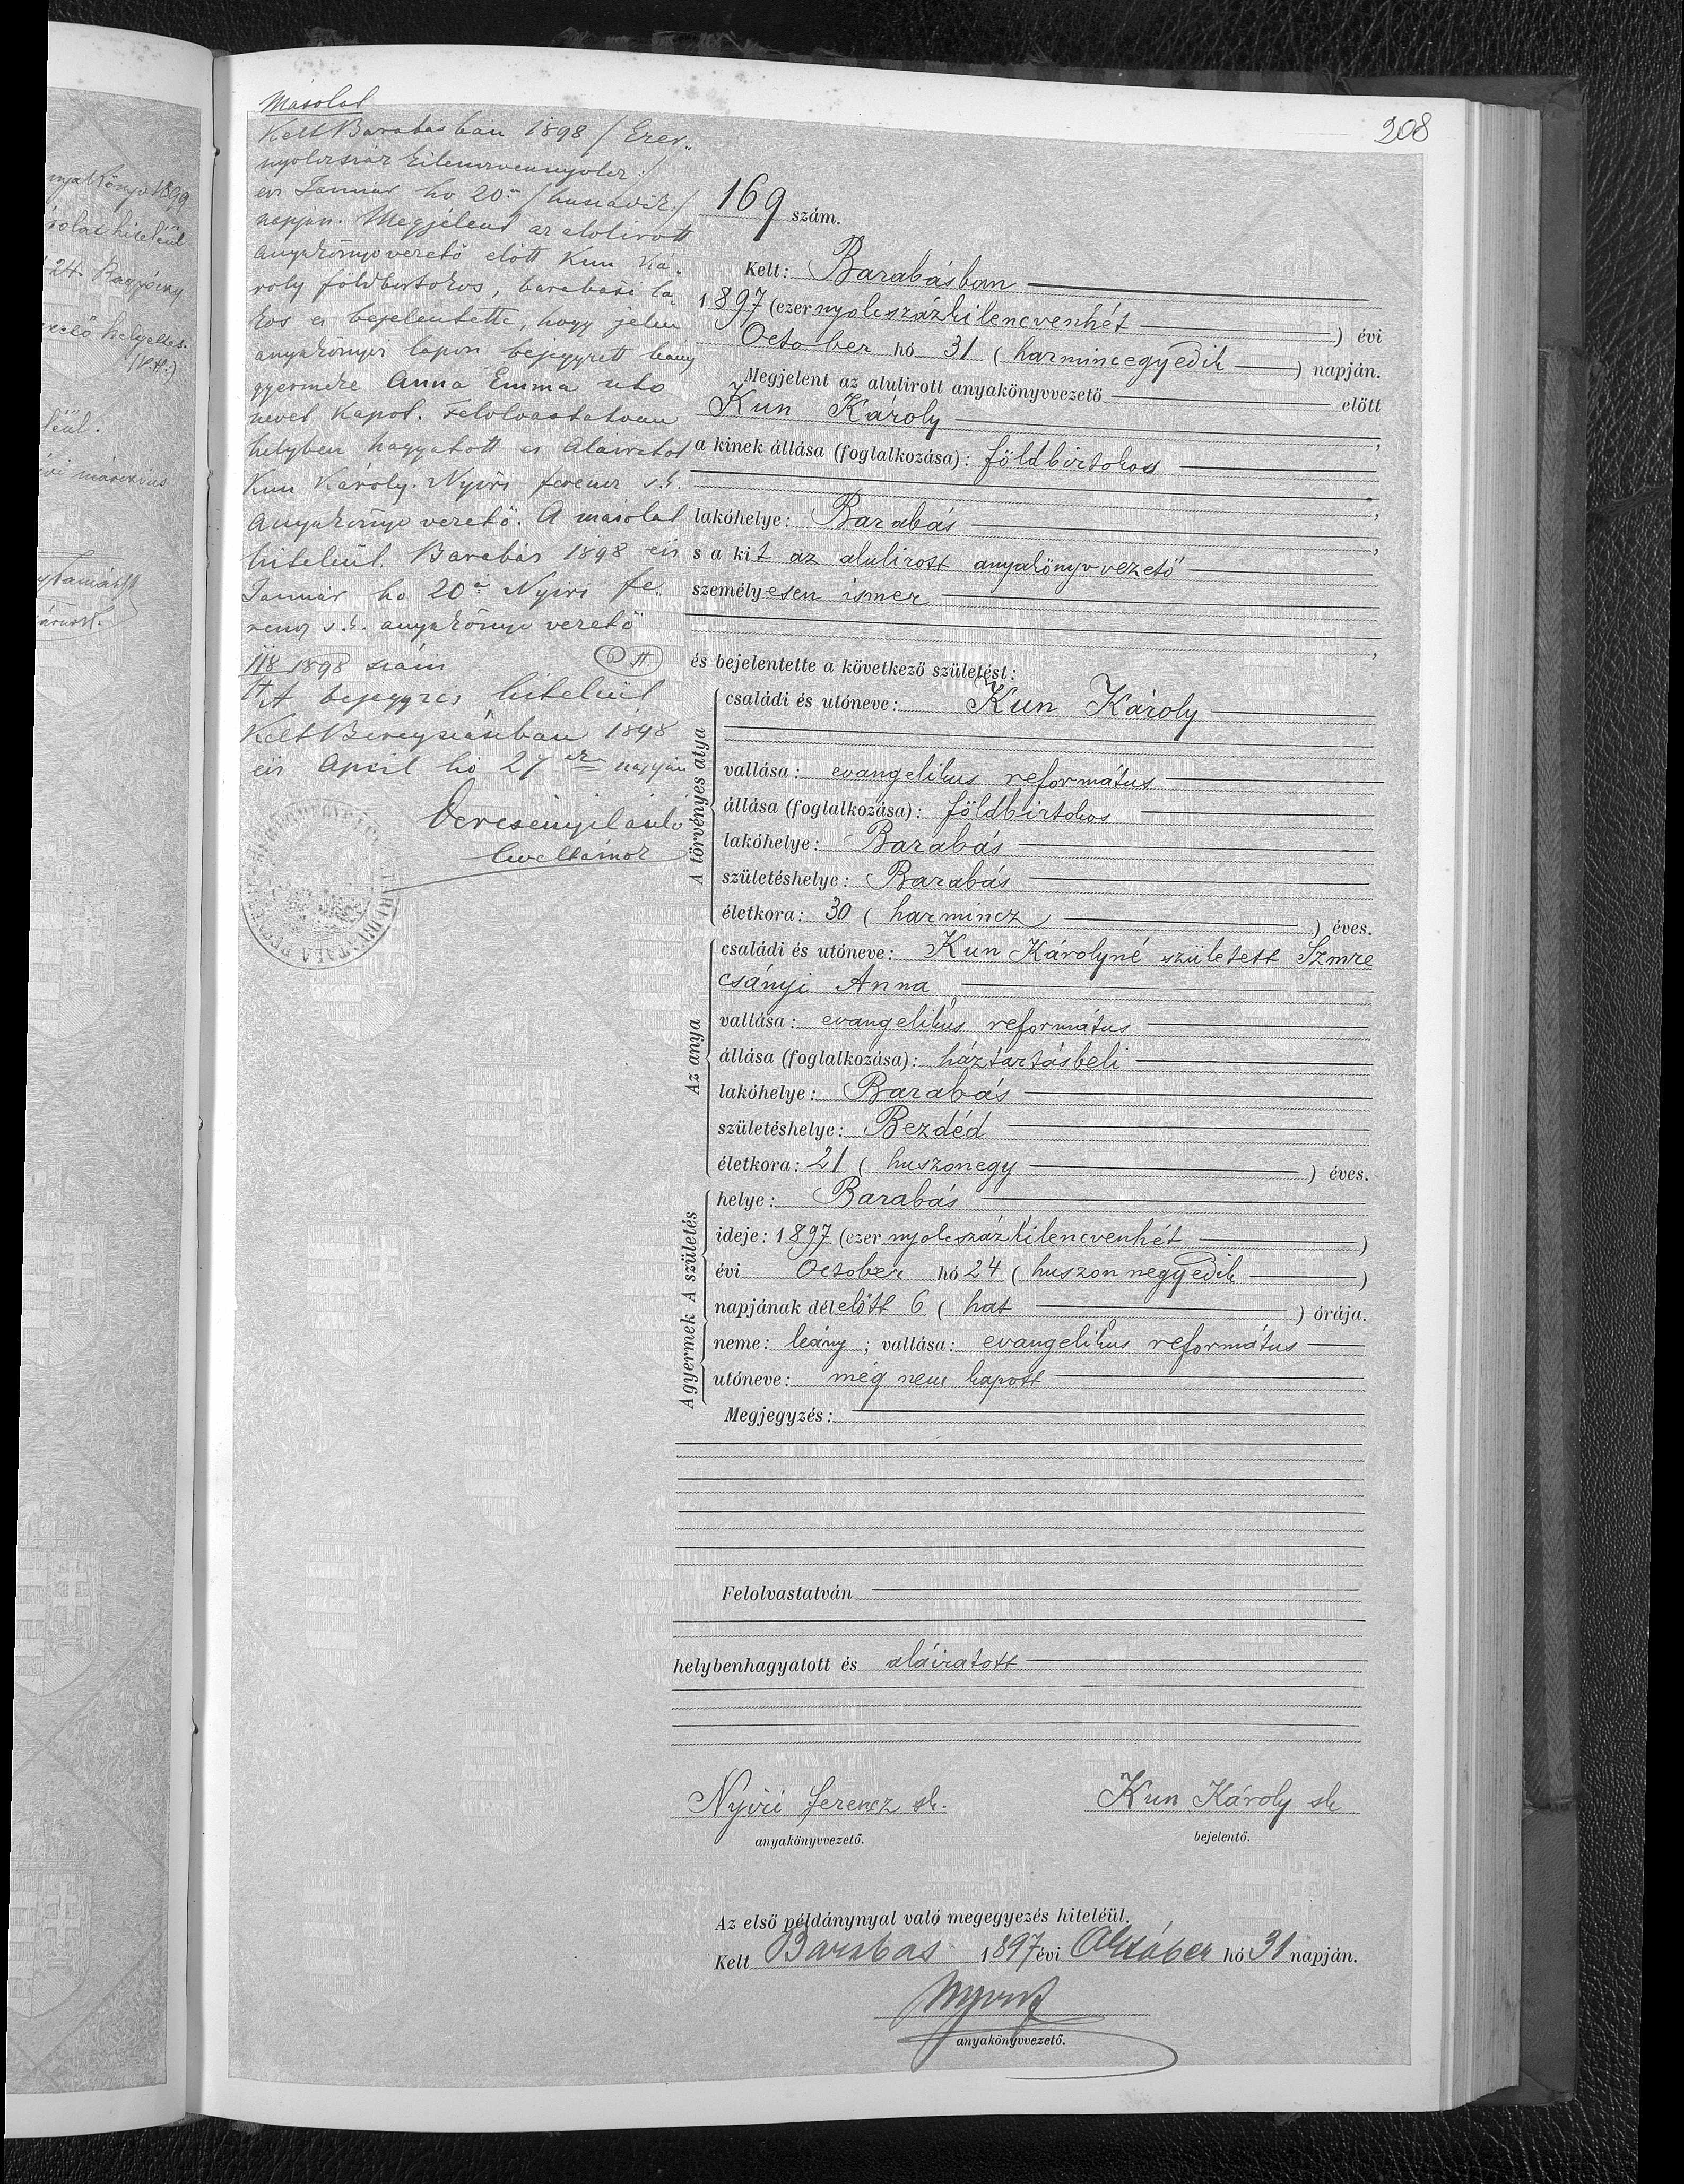 208
Másolat
Kelt Barabásban 1898 / Ezer-
nyolczszáz kilenczvennyolcz /
év Január hó 20. / huszadik /
napján. Megjelent az alolirott
anyakönyvvezető előtt Kun Ká-
roly földbirtokos, barabási la-
kos és bejelentette, hogy jelen
anyakönyvi lapon bejegyzett leány
gyermeke Anna Emma utó
nevet kapot. Felolvastatván
helyben hagyatott és aláiratot
Kun Károly. Nyiri ferencz s.k.
anyakönyv vezető. A másolat
hiteléül. Barabás 1898 év
Január hó 20án Nyiri fe-
rencz s.k. anyakönyv vezető
118 1898 szám P. H.
A bejegyzés hiteléül
Kelt Beregszászban 1898
év April hó 27 én napján
169 szám.
Kelt: Barabásban
1897 (ezer nyolcszázkilencvenhét ) évi
October hó 31 ( harmincegyedik ) napján.
Megjelent az alulirott anyakönyvvezető előtt
Kun Károly ,
a kinek állása (foglalkozása): földbirtokos
lakóhelye: Barabás ,
s a kit az alulirott anyakönyvvezető
személyesen ismer
,
és bejelentette a következő születést:
A törvényes atya
családi és utóneve: Kun Károly
vallása: evangelikus református
állása (foglalkozása): földbirtokos
lakóhelye: Barabás
születéshelye: Barabás
életkora: 30 ( harmincz ) éves.
Az anya
családi és utóneve: Kun Károlyné született Szmre
csányi Anna
vallása: evangelikus református
állása (foglalkozása): háztartásbeli
lakóhelye: Barabás
születéshelye: Bezdéd
életkora: 21 ( huszonegy ) éves.
A születés
helye: Barabás
ideje: 1897 (ezer nyolcszázkilencvenhét )
évi October hó 24 ( huszonnegyedik )
napjának délelőtt 6 ( hat ) órája.
A gyermek
neme: leány ; vallása: evangelikus református
utóneve: még nem kapott
Megjegyzés:
Felolvastatván
helybenhagyatott és aláiratott
Nyiri ferencz sk. Kun Károly sk
anyakönyvvezető. bejelentő.
Az első példánynyal való megegyezés hiteléül.
Kelt Barabas 1897 évi Október hó 31 napján.
anyakönyvvezető.